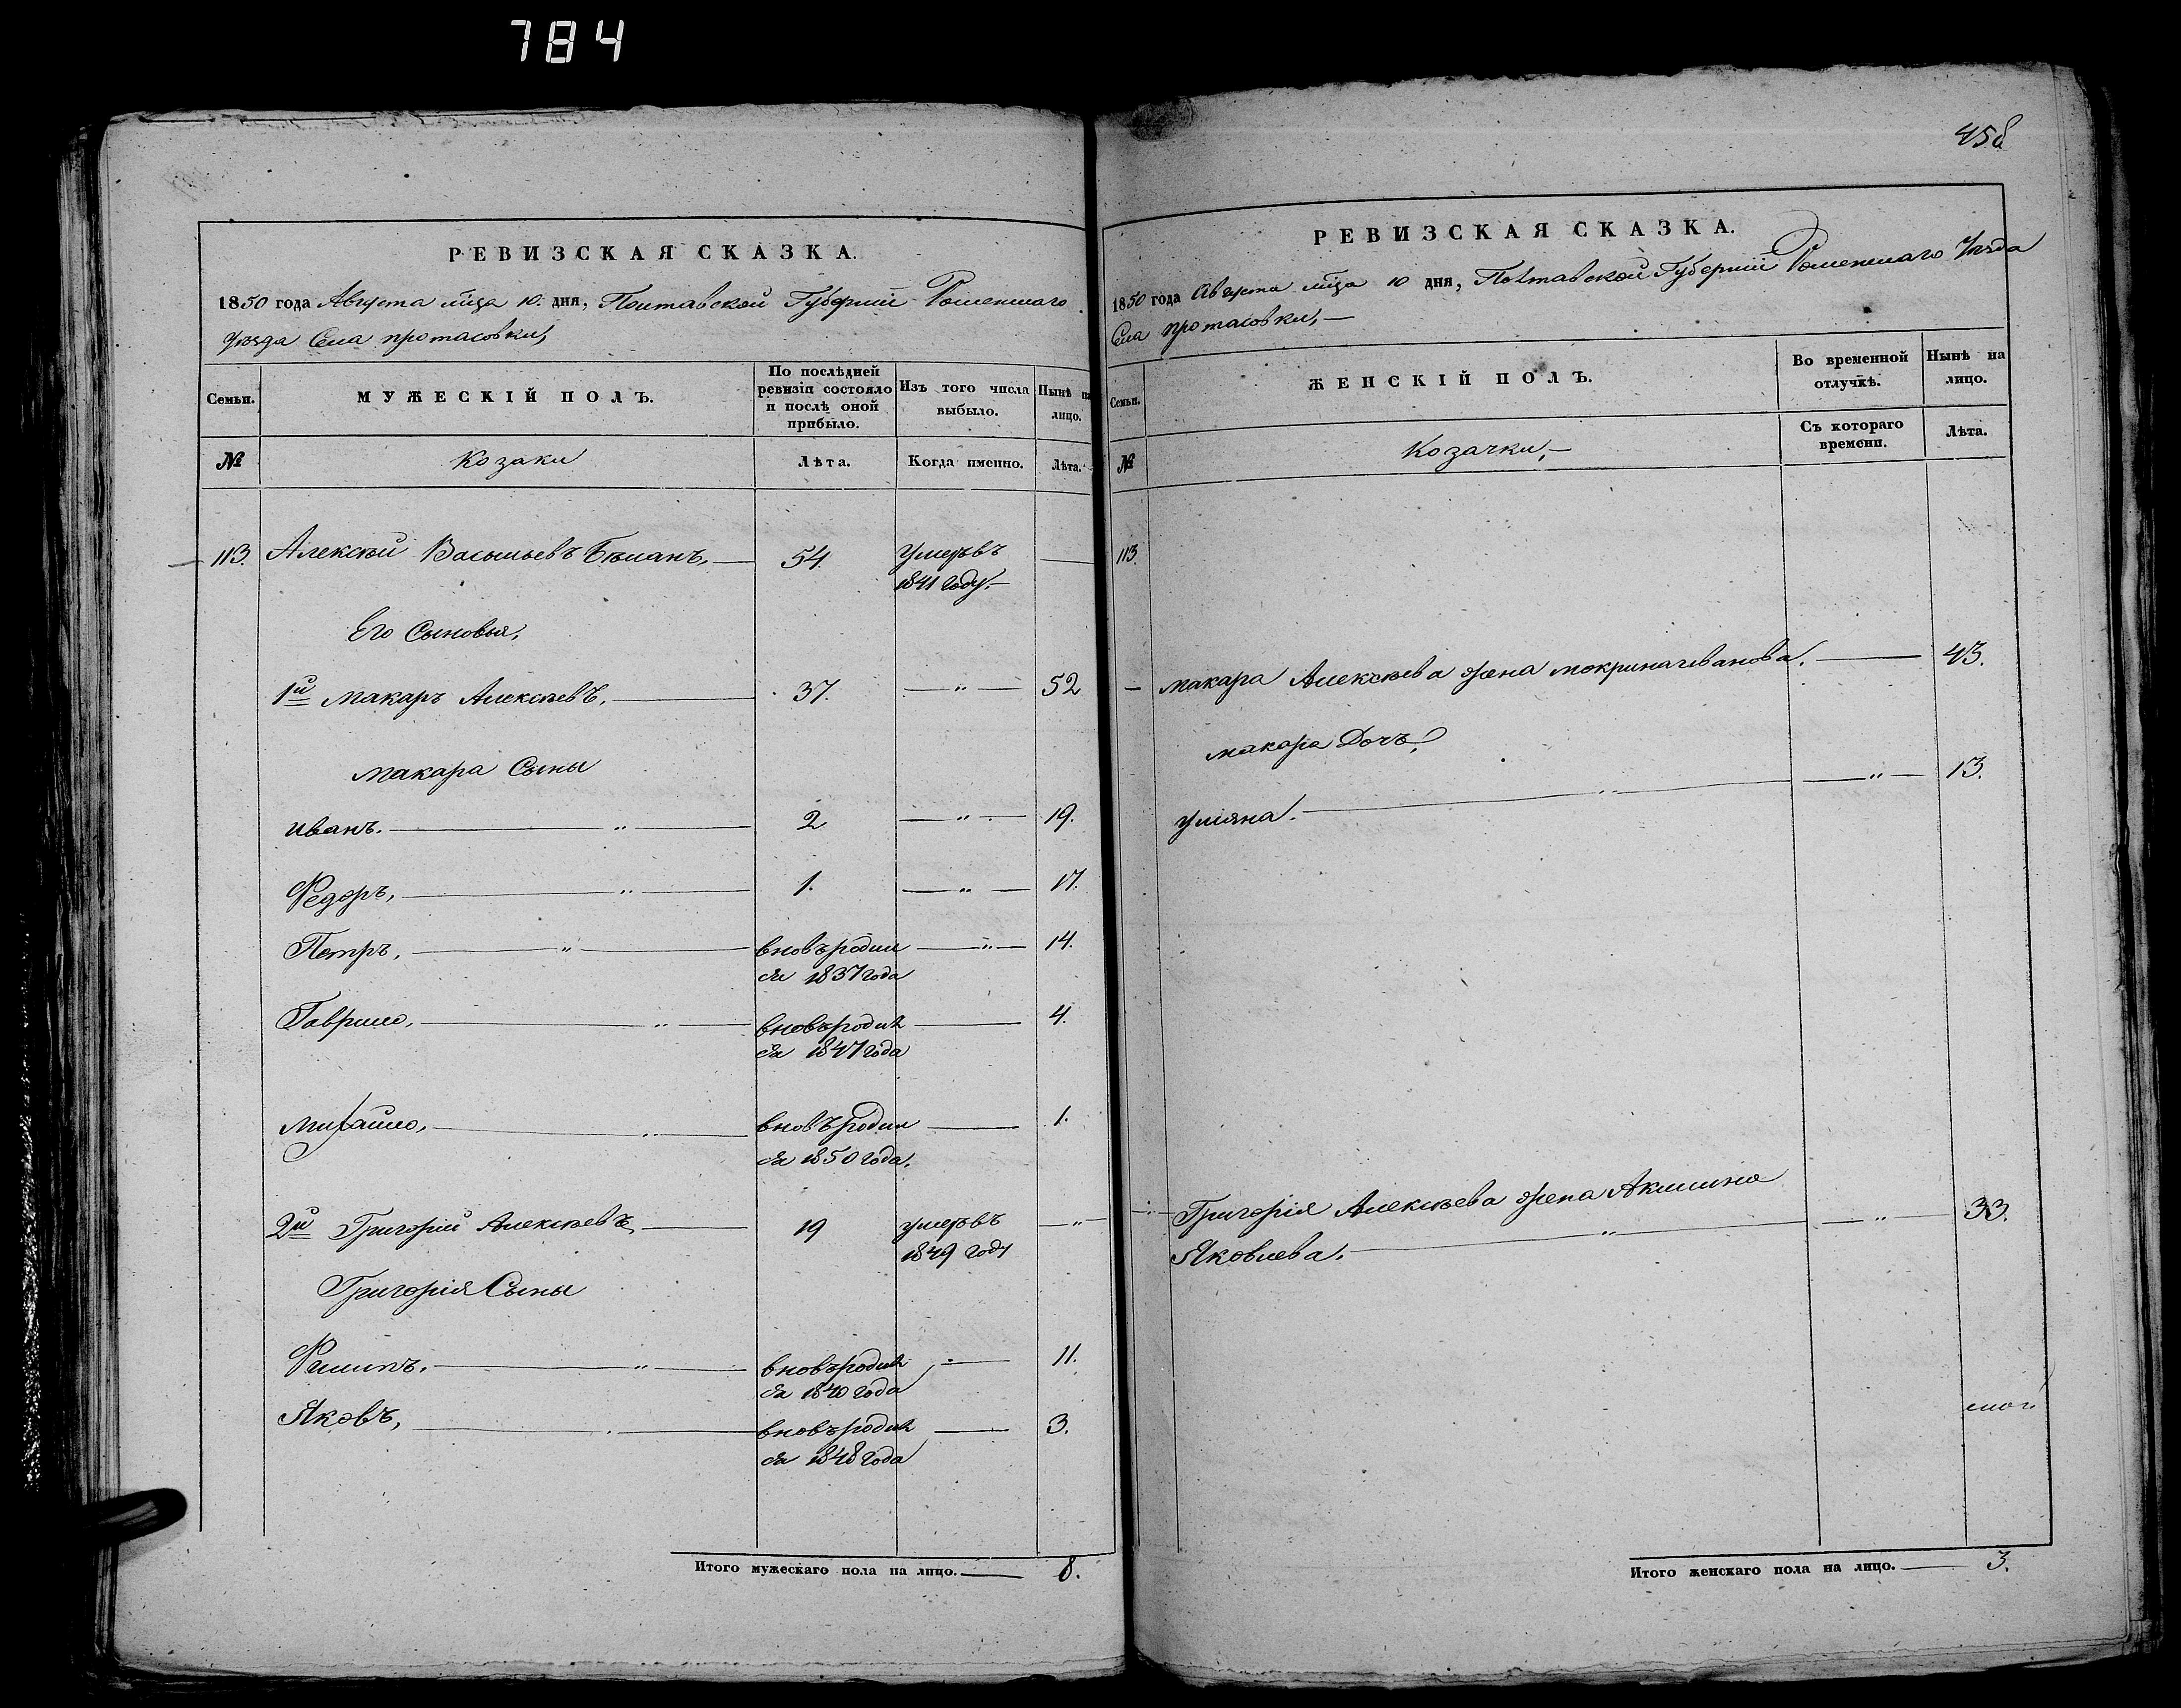 784
РЕВИЗСКАЯ СКАЗКА.
1850 года Августа мца 10. дня, Полтавской Губернии Роменскаго
уезда Села протасовки,
Семьи.
МУЖЕСКІЙ ПОЛЪ.
По послѣдней ревизіи состояло и послѣ оной прибыло.
Изъ того числа выбыло.
Нынѣ на лицо.
№
Козаки
Лѣта.
Когда именно.
Лѣта.
113. Алексѣй Васильевъ 54. Умеръ въ
1841 году.
Его Сыновья,
1й Макаръ Алексѣевъ, 37 — " — 52
Макара Сыны
Иванъ. — " — 2 — " — 19.
Федоръ, — " — 1. — " — 17.
Петръ, — " — вновь родил — " — 14.
ся 1837 года
Гаврило, — " — вновь родил — 4.
ся 1847 года
Михайло, — " — вновь родил — 1.
ся 1850 года.
2й Григорій Алексѣевъ, — 19 умеръ въ — " —
1849 году
Григорія Сыны
Филипъ, — " — вновь родил — 11.
ся 1840 года
Яковъ, — вновь родил — 3.
ся 1848 года
Итого мужескаго пола на лицо. — 8.
458
РЕВИЗСКАЯ СКАЗКА.
1850 года Августа мца 10 дня, Полтавской Губерніи Роменскаго Уезда
Села протасовки, —
Семьи.
ЖЕНСКІЙ ПОЛЪ.
Во временной отлучкѣ.
Нынѣ на лицо.
№
Козачки, —
Съ котораго времени.
Лѣта.
113.
— Макара Алексѣева жена мокрина иванова. — 43.
макара Дочь,
уліяна. — " — 13.
Григорія Алексѣева жена Акилина
Яковлева. — " — 33.
Итого женскаго пола на лицо. — 3.